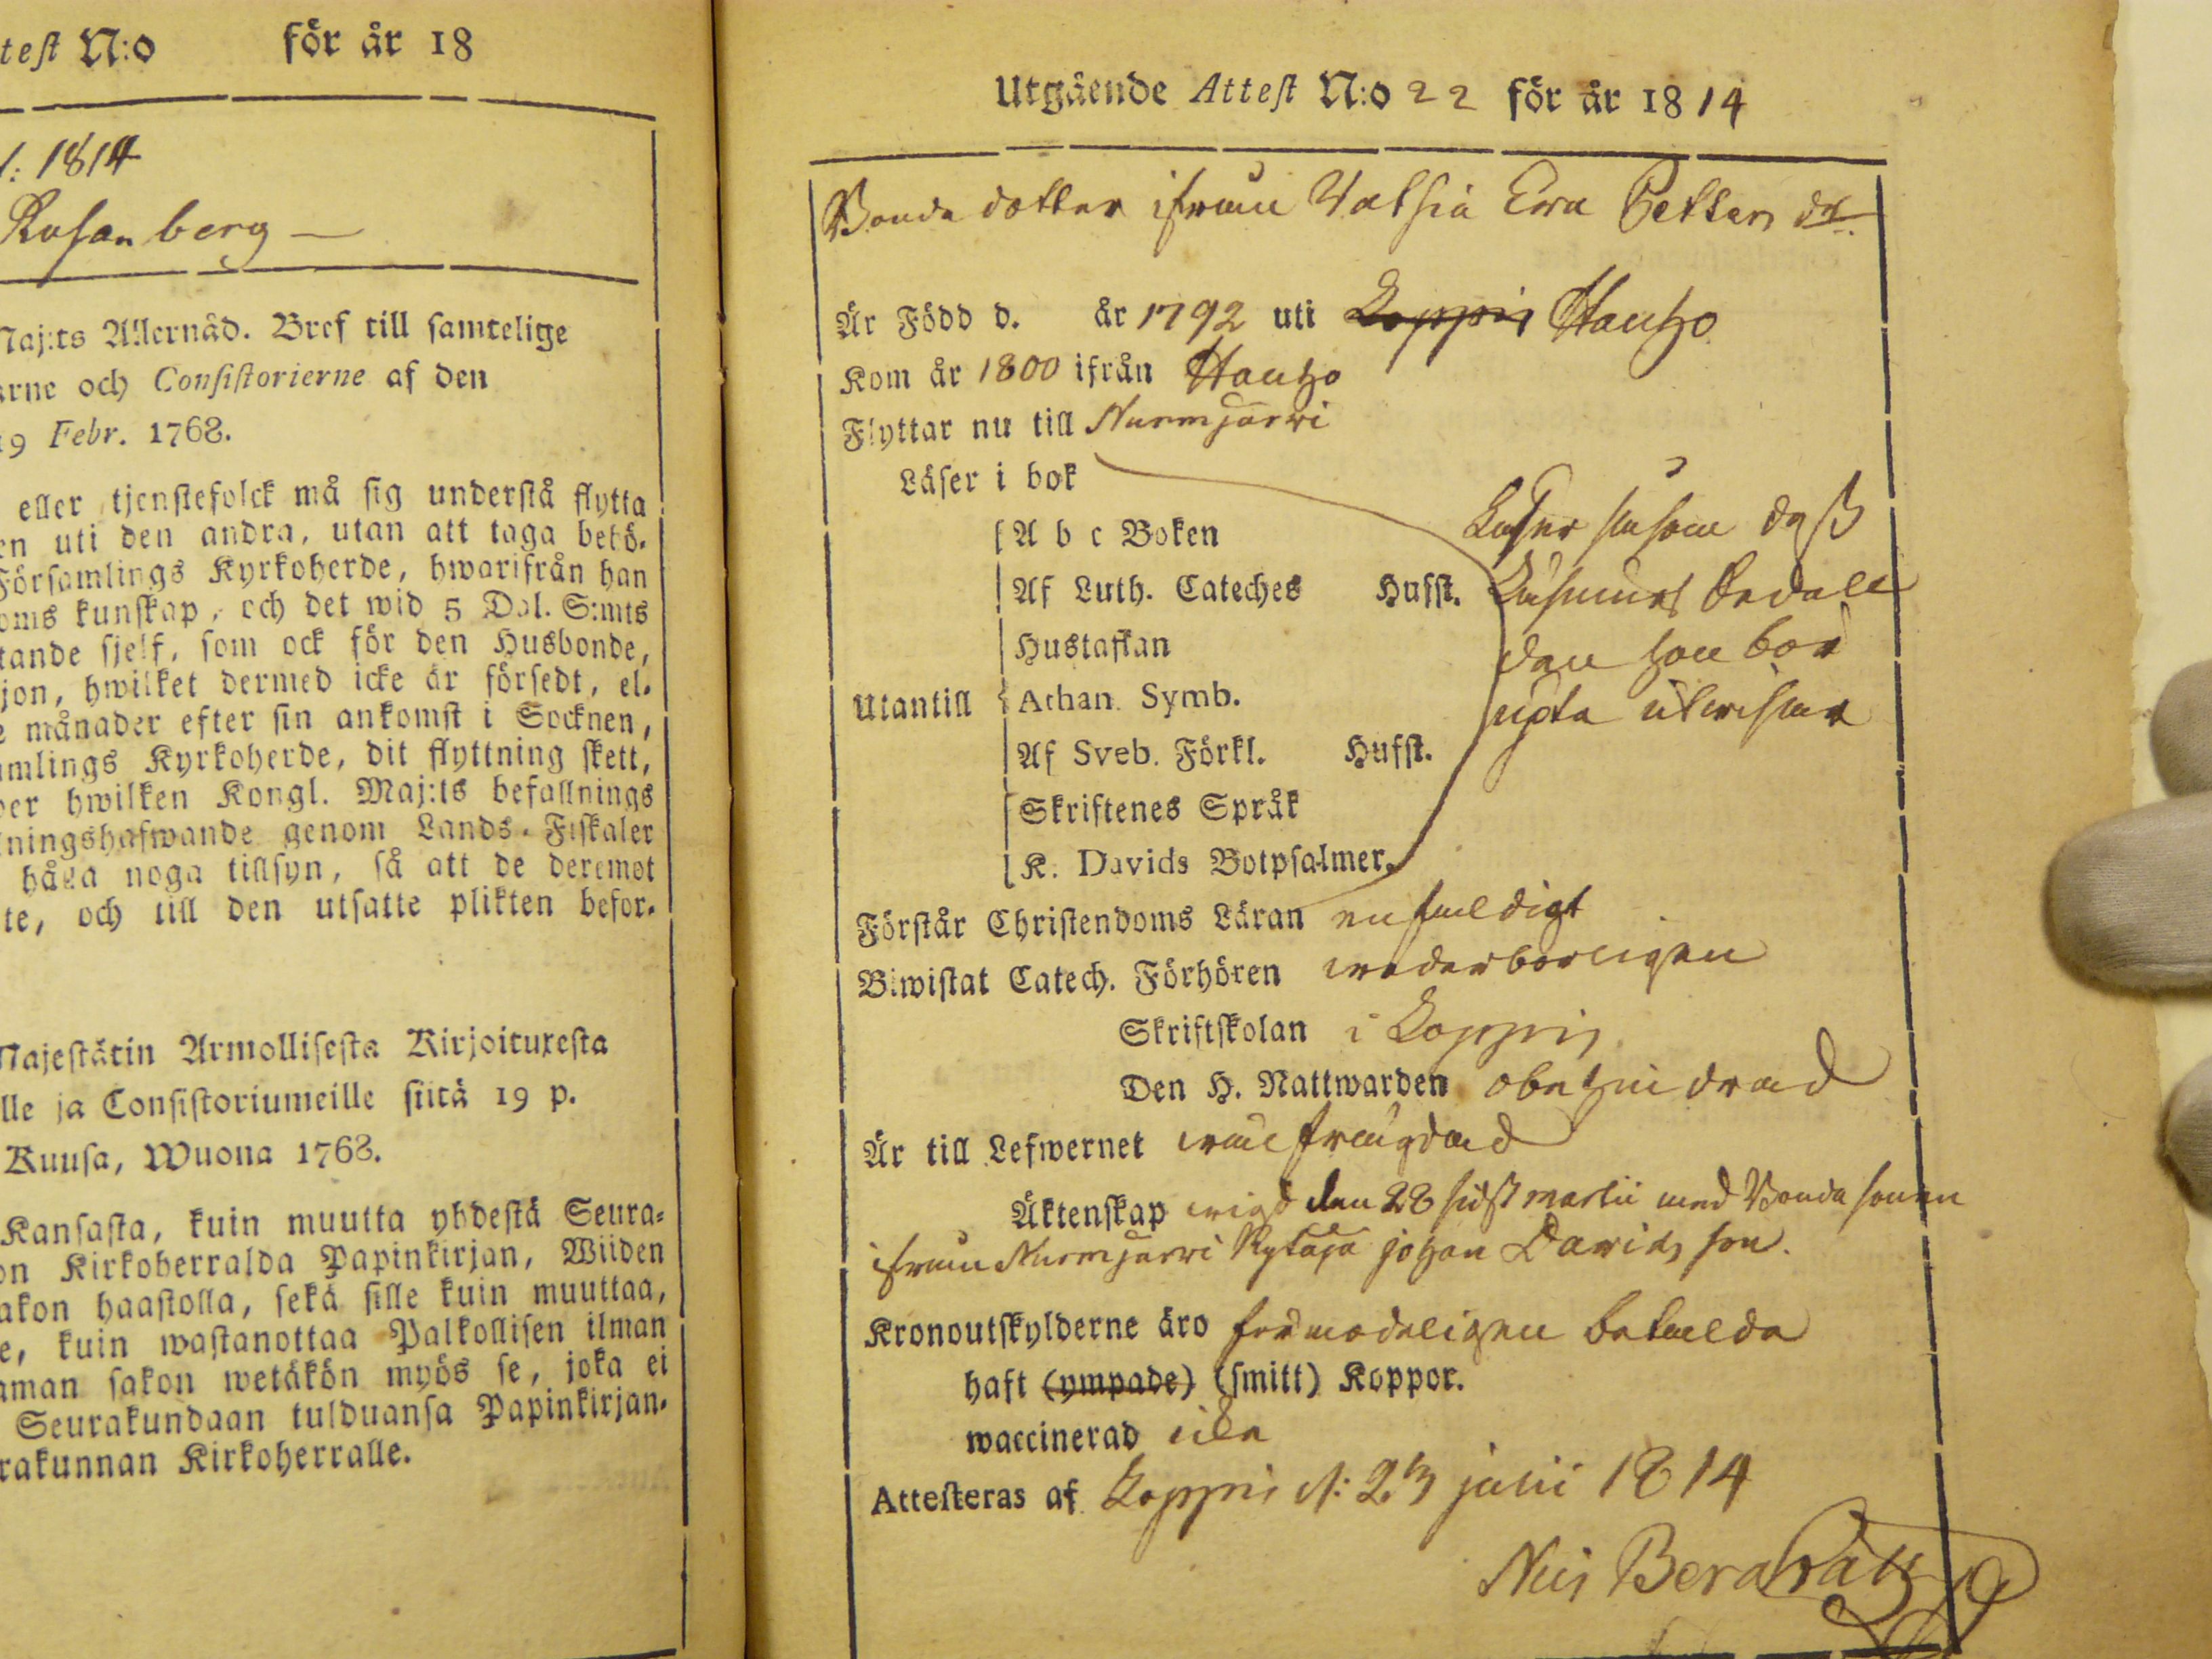 test N:o för år 18
1: 1814
Rosenberg
Maj:ts Allernåd. Bref till samtelige
rne och Consistorierne af den
19 Febr. 1768.
eller tjenstefolck må sig understå flytta
en uti den andra, utan att taga behö-
Församlings Kyrkoherde, hwarifrån han
oms kunskap, och det wid 5 Dal. S:mts
tande sjelf, som ock för den Husbonde,
jon, hwilket dermed icke är försedt, el-
månader efter sin ankomst i Socknen,
mlings Kyrkoherde, dit flyttning skett,
er hwilken Kongl. Maj:ts befallnings
ningshafwande genom Lands-Fiskaler
hålla noga tillsyn, så att de deremot
te, och till den utsatte plikten befor-
Majestätin Armollisesta Kirjoituxesta
lle ja Consistoriumeille siitä 19 p.
Kuusa, Wuona 1768.
Kansasta, kuin muutta yhdestä Seura-
on Kirkoherralda Papinkirjan, Wiiden
akon haastolla, sekä sille kuin muuttaa,
e, kuin wastanottaa Palkollisen ilman
aman sakon wetäkön myös se, joka ei
Seurakundaan tulduansa Papinkirjan-
rakunnan Kirkoherralle.
Utgående Attest N:o 22 för år 1814
Bonde dotter ifrån Ewa Petters dr.
Är Född d. år 1792 uti Loppis Hauho
Kom år 1800 ifrån Hauho
Flyttar nu till Nurmjärwi
Läser i bok
A b c Boken
Af Luth. Cateches Hufst.
Hustaflan
Utantill Athan. Symb.
Af Sveb. Förkl. Hufst.
Skriftenes Språk
K. Davids Botpsalmer.
Läser såsom dess
Läsnings Sedell
den hon bör
upta utwisar
Förstår Christendoms Läran enfaldigt
Biwistat Catech. Förhören wederbörligen
Skriftskolan i Loppis
Den H. Nattwarden obehindrad
Är till Lefwernet wälfrägdad
Äktenskap wigd den 28 sidst martii med Bonde sonen
ifrån Nurmjärwi Kytäjä johan Davids son.
Kronoutskylderne äro förmodeligen betalda
haft (ympade) (smitt) Koppor.
waccinerad icke
Attesteras af Loppis d: 23 julii 1814
Nils Bera